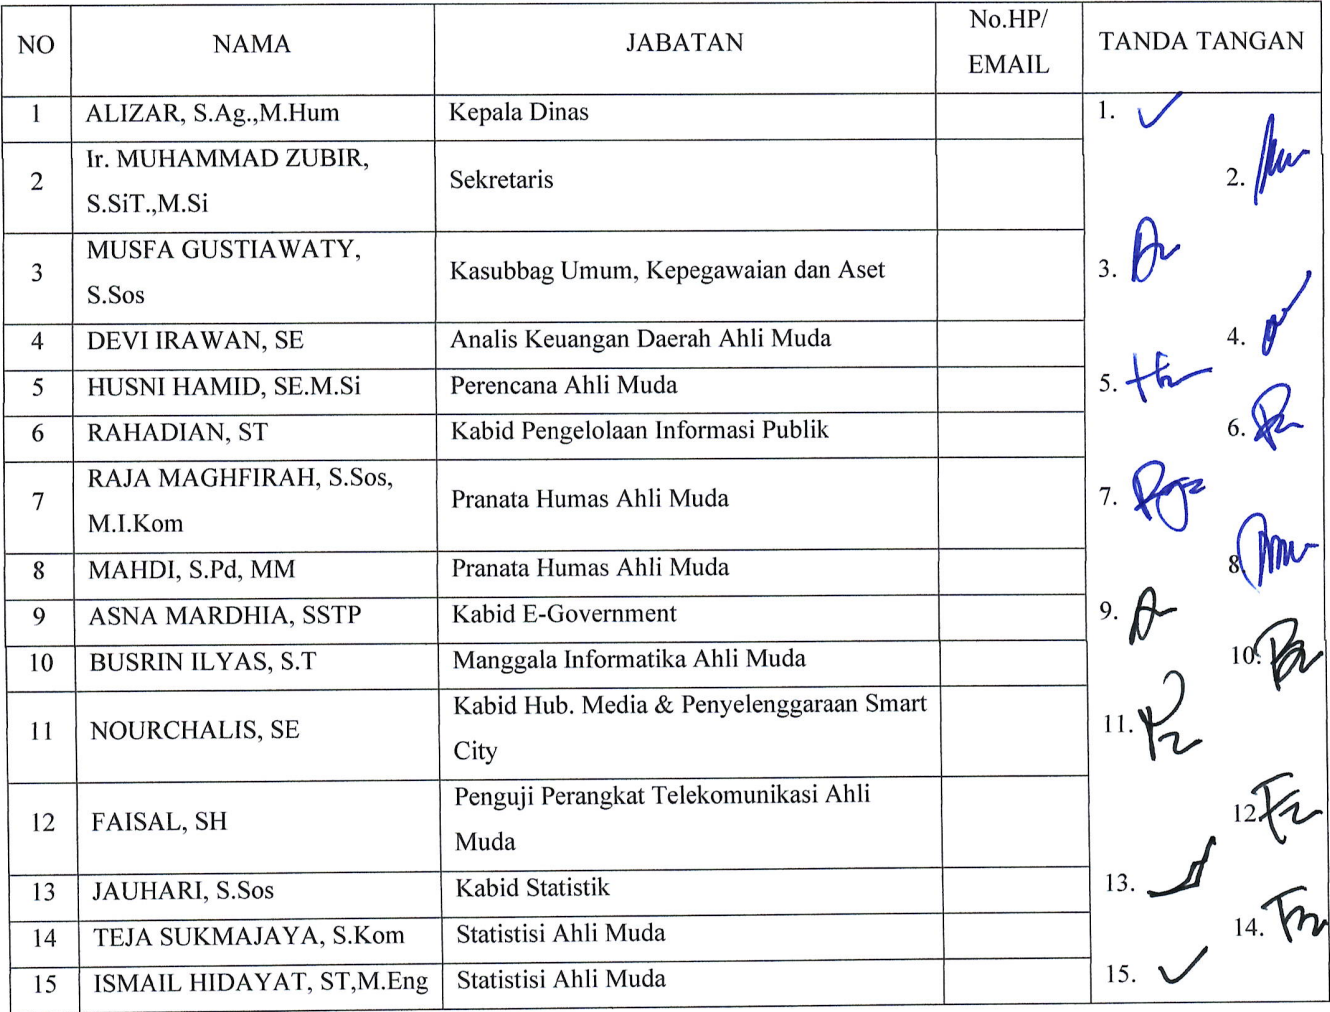 NO NAMA JABATAN No.HP/ EMAIL TANDA TANGAN
1 ALIZAR, S.Ag.,M.Hum Kepala Dinas 1.
2 Ir. MUHAMMAD ZUBIR, S.SiT.,M.Si Sekretaris 2.
3 MUSFA GUSTIAWATY, S.Sos Kasubbag Umum, Kepegawaian dan Aset 3.
4 DEVI IRAWAN, SE Analis Keuangan Daerah Ahli Muda 4.
5 HUSNI HAMID, SE.M.Si Perencana Ahli Muda 5.
6 RAHADIAN, ST Kabid Pengelolaan Informasi Publik 6.
7 RAJA MAGHFIRAH, S.Sos, M.I.Kom Pranata Humas Ahli Muda 7.
8 MAHDI, S.Pd, MM Pranata Humas Ahli Muda 8.
9 ASNA MARDHIA, SSTP Kabid E-Government 9.
10 BUSRIN ILYAS, S.T Manggala Informatika Ahli Muda 10.
11 NOURCHALIS, SE Kabid Hub. Media & Penyelenggaraan Smart City 11.
12 FAISAL, SH Penguji Perangkat Telekomunikasi Ahli Muda 12.
13 JAUHARI, S.Sos Kabid Statistik 13.
14 TEJA SUKMAJAYA, S.Kom Statistisi Ahli Muda 14.
15 ISMAIL HIDAYAT, ST,M.Eng Statistisi Ahli Muda 15.